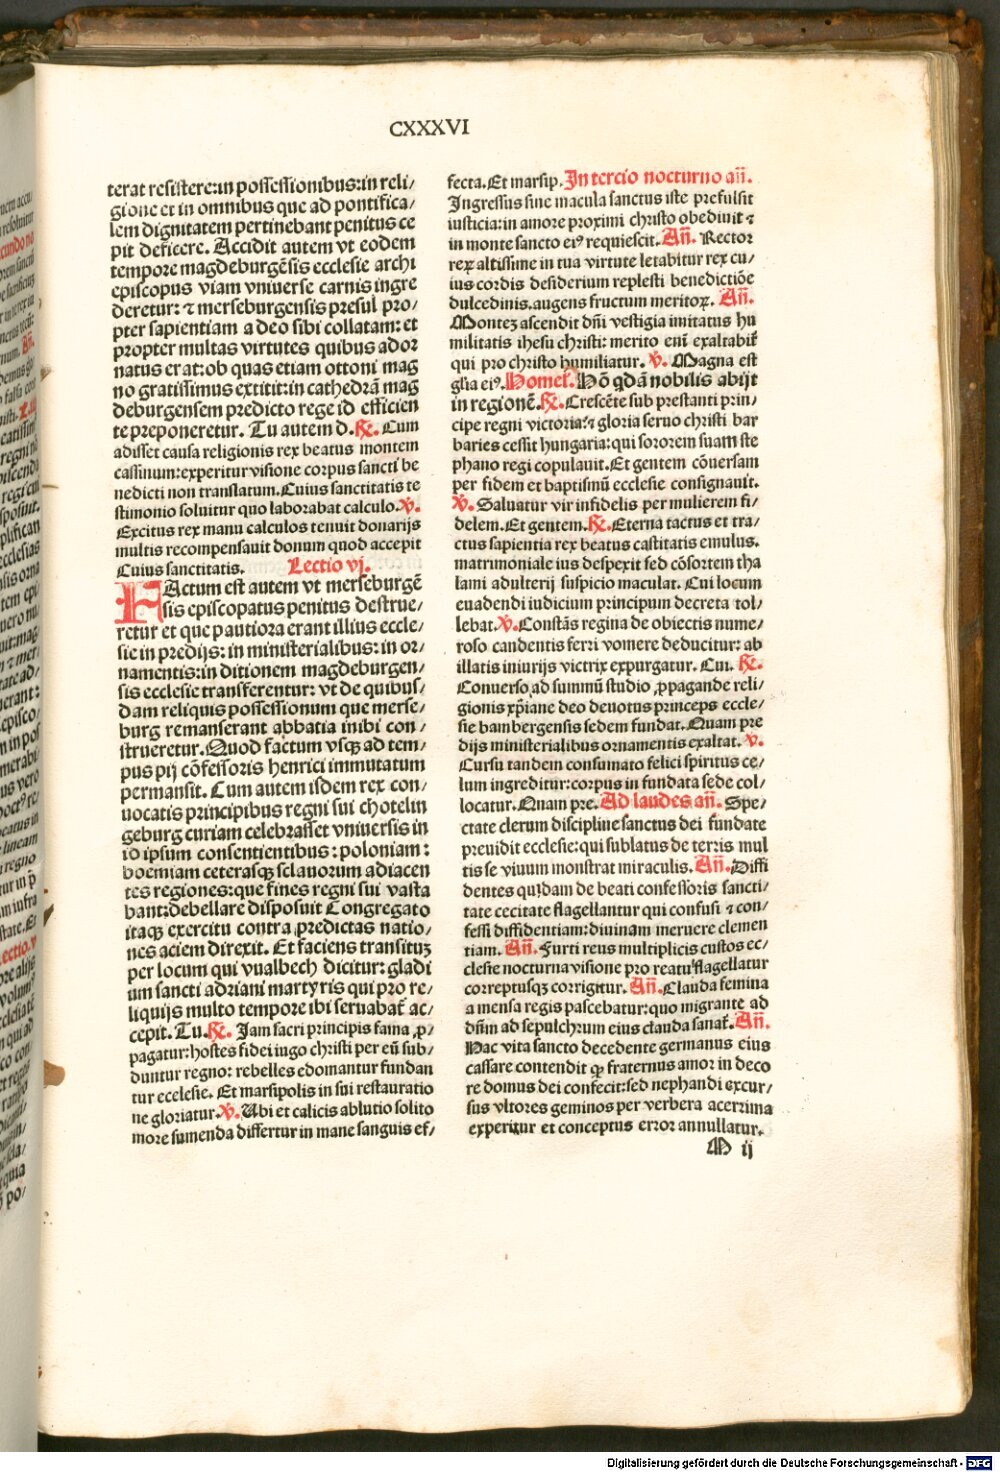 CXXXVI
terat resistere:in possessionibus:in reli/
gione et in omnibus que ad pontifica/
lem dignitatem pertinebant penitus ce
pit deficere. Accidit autem vt eodem
tempore magdeburgēsis ecclesie archi
episcopus viam vniuerse carnis ingre
deretur: ⁊ merseburgensis presul pro/
pter sapientiam a deo sibi collatam: et
propter multas virtutes quibus ador
natus erat:ob quas etiam ottoni mag
no gratissimus extitit:in cathedrā mag
deburgensem predicto rege id efficien
te preponeretur. Tu autem d. ℟. Cum
adisset causa religionis rex beatus montem
cassinum:experitur visione corpus sancti be
nedicti non translatum.Cuius sanctitatis te
stimonio soluitur quo laborabat calculo. ℣.
Excitus rex manu calculos tenuit donarijs
multis recompensauit donum quod accepit
Cuius sanctitatis. Lectio vj.
FActum est autem vt merseburgē
sis episcopatus penitus destrue/
retur et que pautiora erant illius eccle/
sie in predijs: in ministerialibus: in or/
namentis:in ditionem magdeburgen/
sis ecclesie transferentur: vt de quibus/
dam reliquis possessionum que merse/
burg remanserant abbatia inibi con/
strueretur. Quod factum vsqꝫ ad tem/
pus pij cōfessoris henrici immutatum
permansit. Cum autem isdem rex con/
uocatis principibus regni sui chotelin
geburg curiam celebrasset vniuersis in
id ipsum consentientibus : poloniam :
boemiam ceterasqꝫ sclauorum adiacen
tes regiones:que fines regni sui vasta
bant:debellare disposuit Congregato
itaqꝫ exercitu contra predictas natio/
nes aciem direxit. Et faciens transituꝫ
per locum qui vualbech dicitur: gladi
um sancti adriani martyris qui pro re/
liquijs multo tempore ibi seruabat̄ ac/
cepit. Tu. ℟. Jam sacri principis fama ꝓ/
pagatur:hostes fidei iugo christi per eū sub/
duntur regno: rebelles edomantur fundan
tur ecclesie. Et marsipolis in sui restauratio
ne gloriatur. ℣. Ubi et calicis ablutio solito
more sumenda differtur in mane sanguis ef/
fecta.Et marsip. In tercio nocturno añ.
Ingressus sine macula sanctus iste prefulsit
iusticia:in amore proximi christo obediuit ⁊
in monte sancto eiꝰ requiescit. Añ. Rector
rex altissime in tua virtute letabitur rex cu/
ius cordis desiderium replesti benedictiōe
dulcedinis.augens fructum meritoꝝ. Añ.
Montem ascendit dn̄i vestigia imitatus hu
militatis ihesu christi: merito eni exaltabit̄
qui pro christo humiliatur. ℣. Magna est
glīa eiꝰ. Homel. Hō qdā nobilis abijt
in regionē. ℟. Crescēte sub prestanti prin/
cipe regni victoria:⁊ gloria seruo christi bar
baries cessit hungaria:qui sororem suam ste
phano regi copulauit.Et gentem cōuersam
per fidem et baptismū ecclesie consignauit.
℣. Saluatur vir infidelis per mulierem fi/
delem.Et gentem. ℟. Eterna tactus et tra/
ctus sapientia rex beatus castitatis emulus.
matrimoniale ius despexit sed cōsortem tha
lami adulterij suspicio maculat. Cui locum
euadendi iudicium principum decreta tol/
lebat. ℣. Constās regina de obiectis nume/
roso candentis ferri vomere deducitur: ab
illatis iniurijs victrix expurgatur. Cui. ℟.
Conuerso ad summū studio ꝓpagande reli/
gionis xp̄iane deo deuotus princeps eccle/
sie bambergensis sedem fundat.Quam pre
dijs ministerialibus ornamentis exaltat. ℣.
Cursu tandem consumato felici spiritus ce/
lum ingreditur:corpus in fundata sede col/
locatur.Quam pre. Ad laudes añ. Spe/
ctate clerum discipline sanctus dei fundate
preuidit ecclesie:qui sublatus de terris mul
tis se viuum monstrat miraculis. Añ. Diffi
dentes quidam de beati confessoris sancti/
tate cecitate flagellantur qui confusi ⁊ con/
fessi diffidentiam:diuinam meruere clemen
tiam. Añ. Furti reus multiplicis custos ec/
clesie nocturna visione pro reatu flagellatur
correptusqꝫ corrigitur. Añ. Clauda femina
a mensa regis pascebatur:quo migrante ad
dn̄m ad sepulchrum eius clauda sanat̄. Añ.
Hac vita sancto decedente germanus eius
cassare contendit qꝫ fraternus amor in deco
re domus dei confecit:sed nephandi excur/
sus vltores geminos per verbera acerrima
experitur et conceptus error annullatur.
M ij
Digitalisierung gefördert durch die Deutsche Forschungsgemeinschaft - DFG